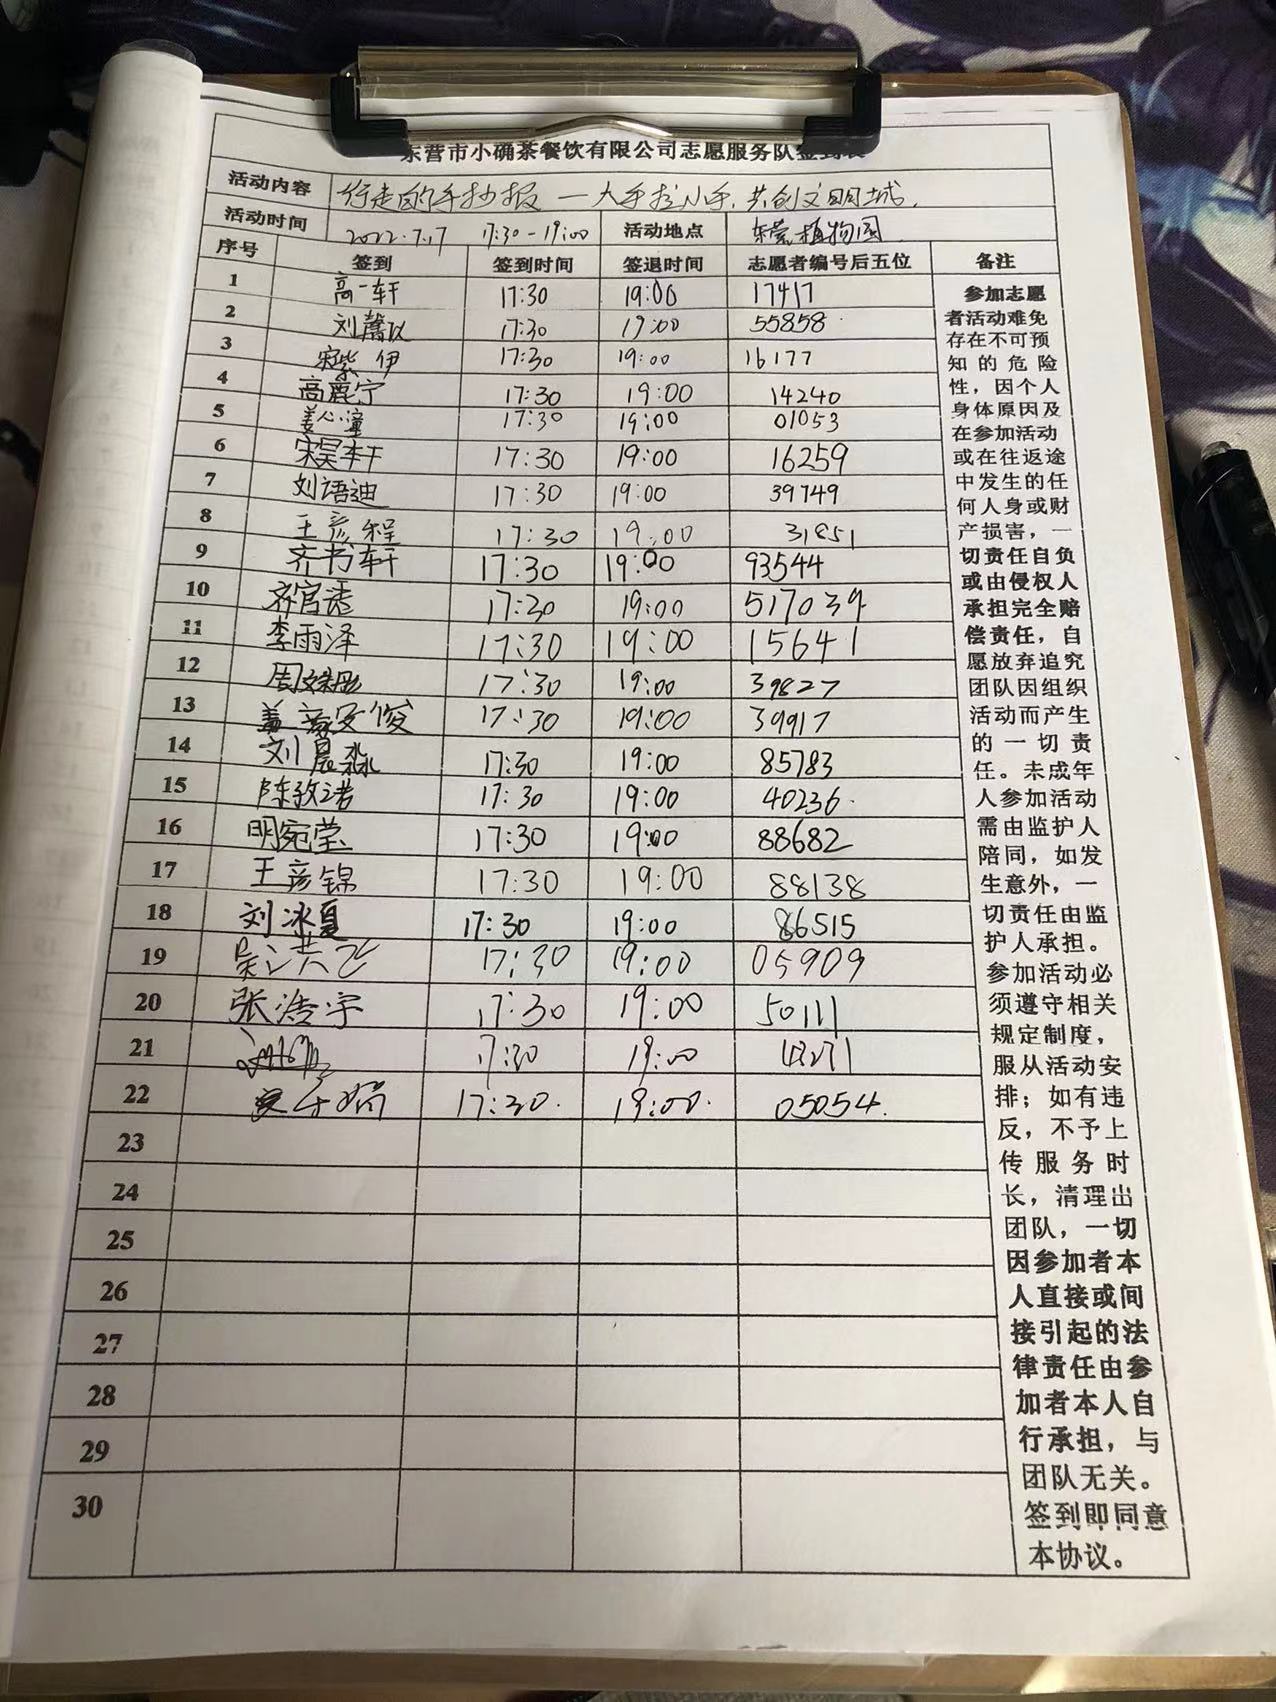 东营市小确茶餐饮有限公司志愿服务队签到表
活动内容 行走的手抄报—大手拉小手,共创文明城.
活动时间 2022.7.17 17:30-19:00 活动地点 东营植物园
序号 签到 签到时间 签退时间 志愿者编号后五位 备注
1 高一轩 17:30 19:00 17417
2 刘馨以 17:30 19:00 55858
3 宋紫伊 17:30 19:00 16177
4 高鹿宁 17:30 19:00 14240
5 姜心潼 17:30 19:00 01053
6 宋昊轩 17:30 19:00 16259
7 刘语迪 17:30 19:00 39749
8 王彦程 17:30 19:00 31851
9 齐书轩 17:30 19:00 93544
10 17:30 19:00 517039
11 李雨泽 17:30 19:00 15641
12 17:30 19:00 39827
13 17:30 19:00 39917
14 刘晨淼 17:30 19:00 85783
15 陈致诺 17:30 19:00 40236
16 明宛莹 17:30 19:00 88682
17 王彦锦 17:30 19:00 88138
18 刘冰夏 17:30 19:00 86515
19 17:30 19:00 05909
20 张浩宇 17:30 19:00 50111
21 17:30 19:00
22 17:30. 19:00. 05054.
23
24
25
26
27
28
29
30
参加志愿
者活动难免
存在不可预
知的危险
性，因个人
身体原因及
在参加活动
或在往返途
中发生的任
何人身或财
产损害，一
切责任自负
或由侵权人
承担完全赔
偿责任，自
愿放弃追究
团队因组织
活动而产生
的一切责
任。未成年
人参加活动
需由监护人
陪同，如发
生意外，一
切责任由监
护人承担。
参加活动必
须遵守相关
规定制度，
服从活动安
排；如有违
反，不予上
传服务时
长，清理出
团队，一切
因参加者本
人直接或间
接引起的法
律责任由参
加者本人自
行承担，与
团队无关。
签到即同意
本协议。